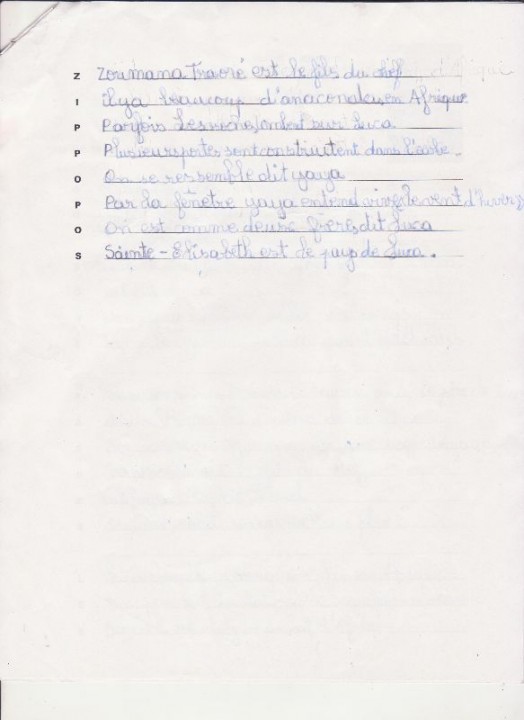 Z Zoumana Traoré est le fils du chef
I il y a beaucoup d'anacondas en Afrique
P Parfois Les tombent sur Luca
P Plusieurs portes sont construitent dans l'arbre
O On se ressemble dit yaya
P Par la fenêtre yaya entend le vent d'hiver
O On est comme deux frères dit Luca
S Sainte - Elisabeth est le pays de Luca.